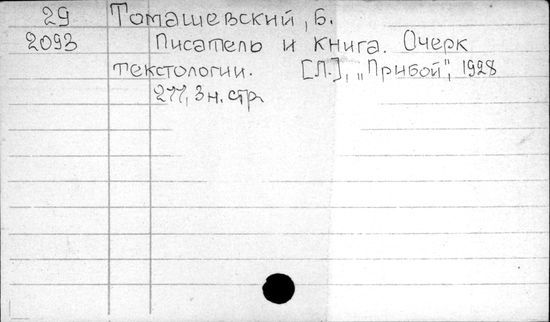 29 Томашевский, Б.
2093 Писатель и книга. Очерк
текстологии. [Л.], „Прибой", 1928
277, 3 н. стр.